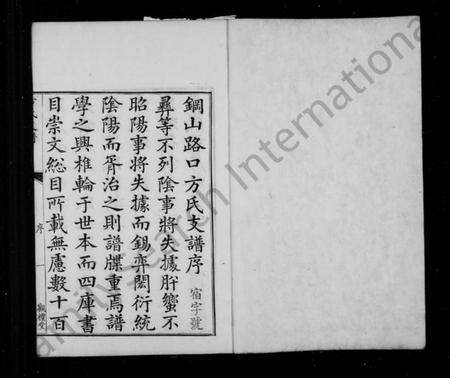 鋼山路口方氏支譜序 宿字號
彞等不列陰事將失據肸蠁不
昭陽事將失據而錫弈閎衍統
陰陽而胥治之則譜牒重焉譜
學之興椎輪于世本而四庫書
目崇文總目所載無慮數十百
序 一
敦複堂
FamilySearch International